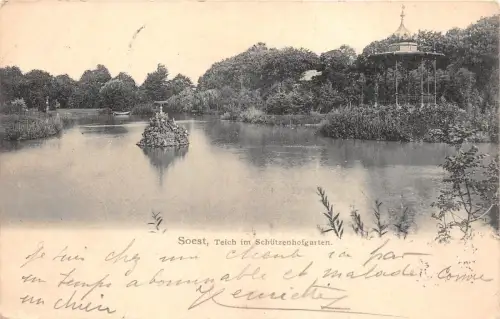 Soest, Teich im Schützenhofgarten.
Je suis chez un
un temps abominable et malade comme
un chien